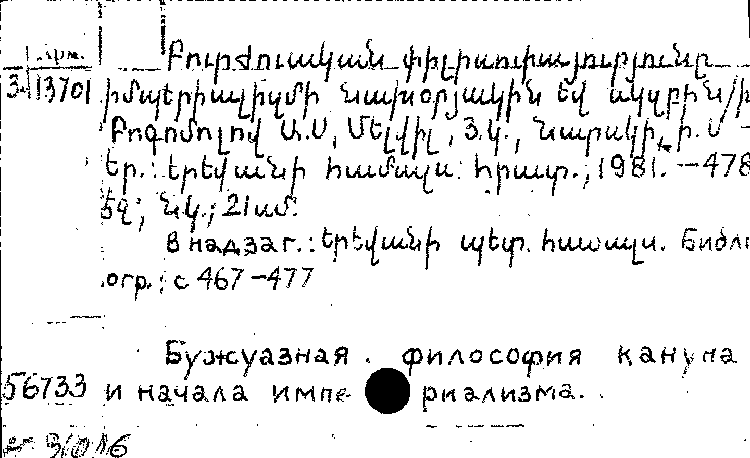 Арм.
3-13701
Բուրժուական փիլիսոփայությունը
իմպերիալիզմի նախօրյակին եվ սկզբին/
Բոգոմոլով Ա.Ս, Մելվիլ, Յ.Կ., Նարսկի, Ի.Ս -
Եր.: Երեվանի համալս. հրատ., 1981. -478
նկ.; 21սմ.
В надзаг.: Երեվանի պետ. համալս. Библи
огр.: с 467-477
Буржуазная философия кануна
56733 и начала империализма.